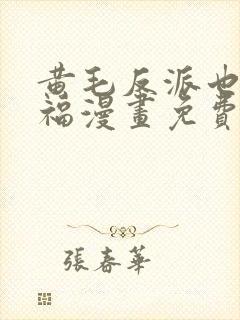 黃毛反派也
福漫畫免費
張春華